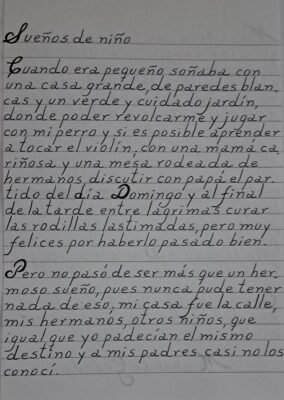 Sueños de niño
Cuando era pequeño, soñaba con
una casa grande, de paredes blan-
cas y un verde y cuidado jardín,
donde poder revolcarme y jugar
con mi perro y si es posible aprender
a tocar el violín, con una mamá ca-
riñosa y una mesa rodeada de
hermanos, discutir con papá el par-
tido del día Domingo y al final
de la tarde entre lágrimas curar
las rodillas lastimadas, pero muy
felices por haberlo pasado bien.
Pero no pasó de ser más que un her-
moso sueño, pues nunca pude tener
nada de eso, mi casa fue la calle,
mis hermanos, otros niños, que
igual que yo padecían el mismo
destino y a mis padres casi no los
conocí.